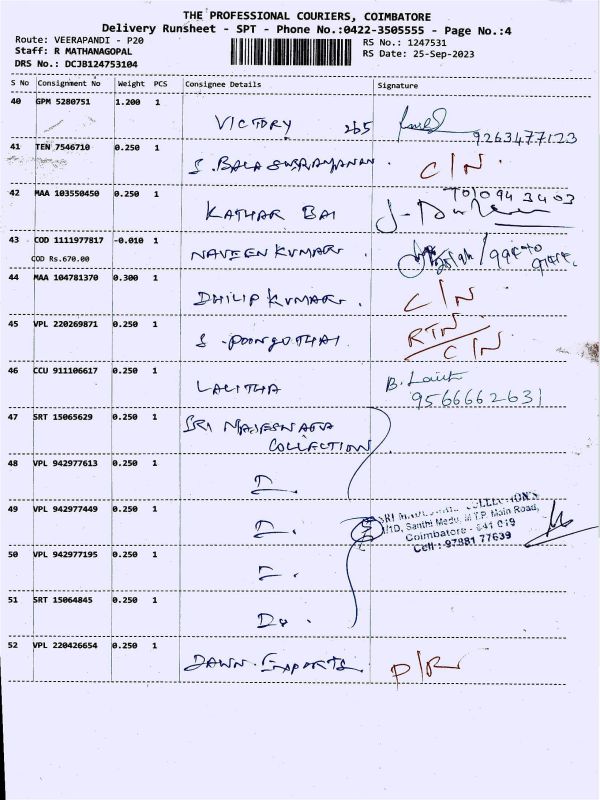 THE PROFESSIONAL COURIERS, COIMBATORE
Delivery Runsheet - SPT - Phone No.:0422-3505555 - Page No.:4
Route: VEERAPANDI - P20
Staff: R MATHANAGOPAL
DRS No.: DCJB124753104
RS No.: 1247531
RS Date: 25-Sep-2023
S No Consignment No Weight PCS Consignee Details Signature
40 GPM 5280751 1.200 1 VICTORY 265 9263477123
41 TEN 7546710 0.250 1 S. BALA C/N.
42 MAA 103550450 0.250 1 KATHAR BAI
43 COD 1111977817 -0.010 1 NAVEEN KUMAR.
COD Rs.670.00
44 MAA 104781370 0.300 1 DHILIP KUMAR. C/N
45 VPL 220269871 0.250 1 S. POONGOTHAI RTN
C/N
46 CCU 911106617 0.250 1 LALITHA B. Lalit
9566662631
47 SRT 15065629 0.250 1 SRI
COLLECTION
48 VPL 942977613 0.250 1
49 VPL 942977449 0.250 1
SRI COLLECTIONS
/1D, Santhi Medu, M.T.P. Main Road,
Coimbatore - 641 019
Cell : 97881 77639
50 VPL 942977195 0.250 1
51 SRT 15064845 0.250 1 Do.
52 VPL 220426654 0.250 1 DAWN. EXPORTS. P/R